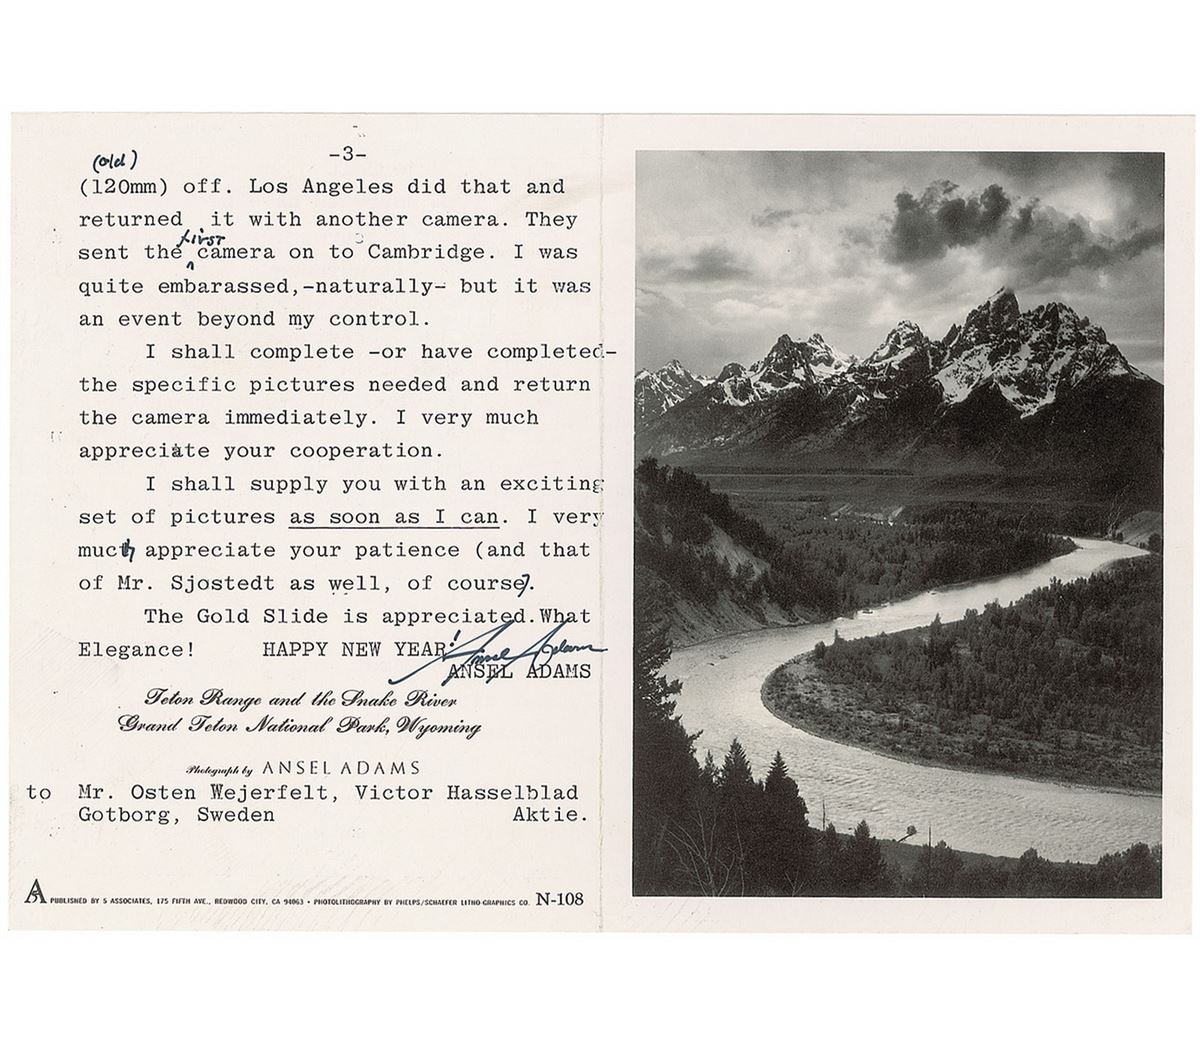 -3-
(old)
(120mm) off. Los Angeles did that and
returned it with another camera. They
sent the first camera on to Cambridge. I was
quite embarassed,-naturally- but it was
an event beyond my control.
I shall complete -or have completed-
the specific pictures needed and return
the camera immediately. I very much
appreciate your cooperation.
I shall supply you with an exciting
set of pictures as soon as I can. I very
much appreciate your patience (and that
of Mr. Sjostedt as well, of course).
The Gold Slide is appreciated.What
Elegance! HAPPY NEW YEAR!
Ansel Adams
ANSEL ADAMS
Teton Range and the Snake River
Grand Teton National Park, Wyoming
Photograph by ANSEL ADAMS
to Mr. Osten Wejerfelt, Victor Hasselblad
Gotborg, Sweden Aktie.
A5 PUBLISHED BY 5 ASSOCIATES, 175 FIFTH AVE., REDWOOD CITY, CA 94063 • PHOTOLITHOGRAPHY BY PHELPS/SCHAEFER LITHO-GRAPHICS CO. N-108